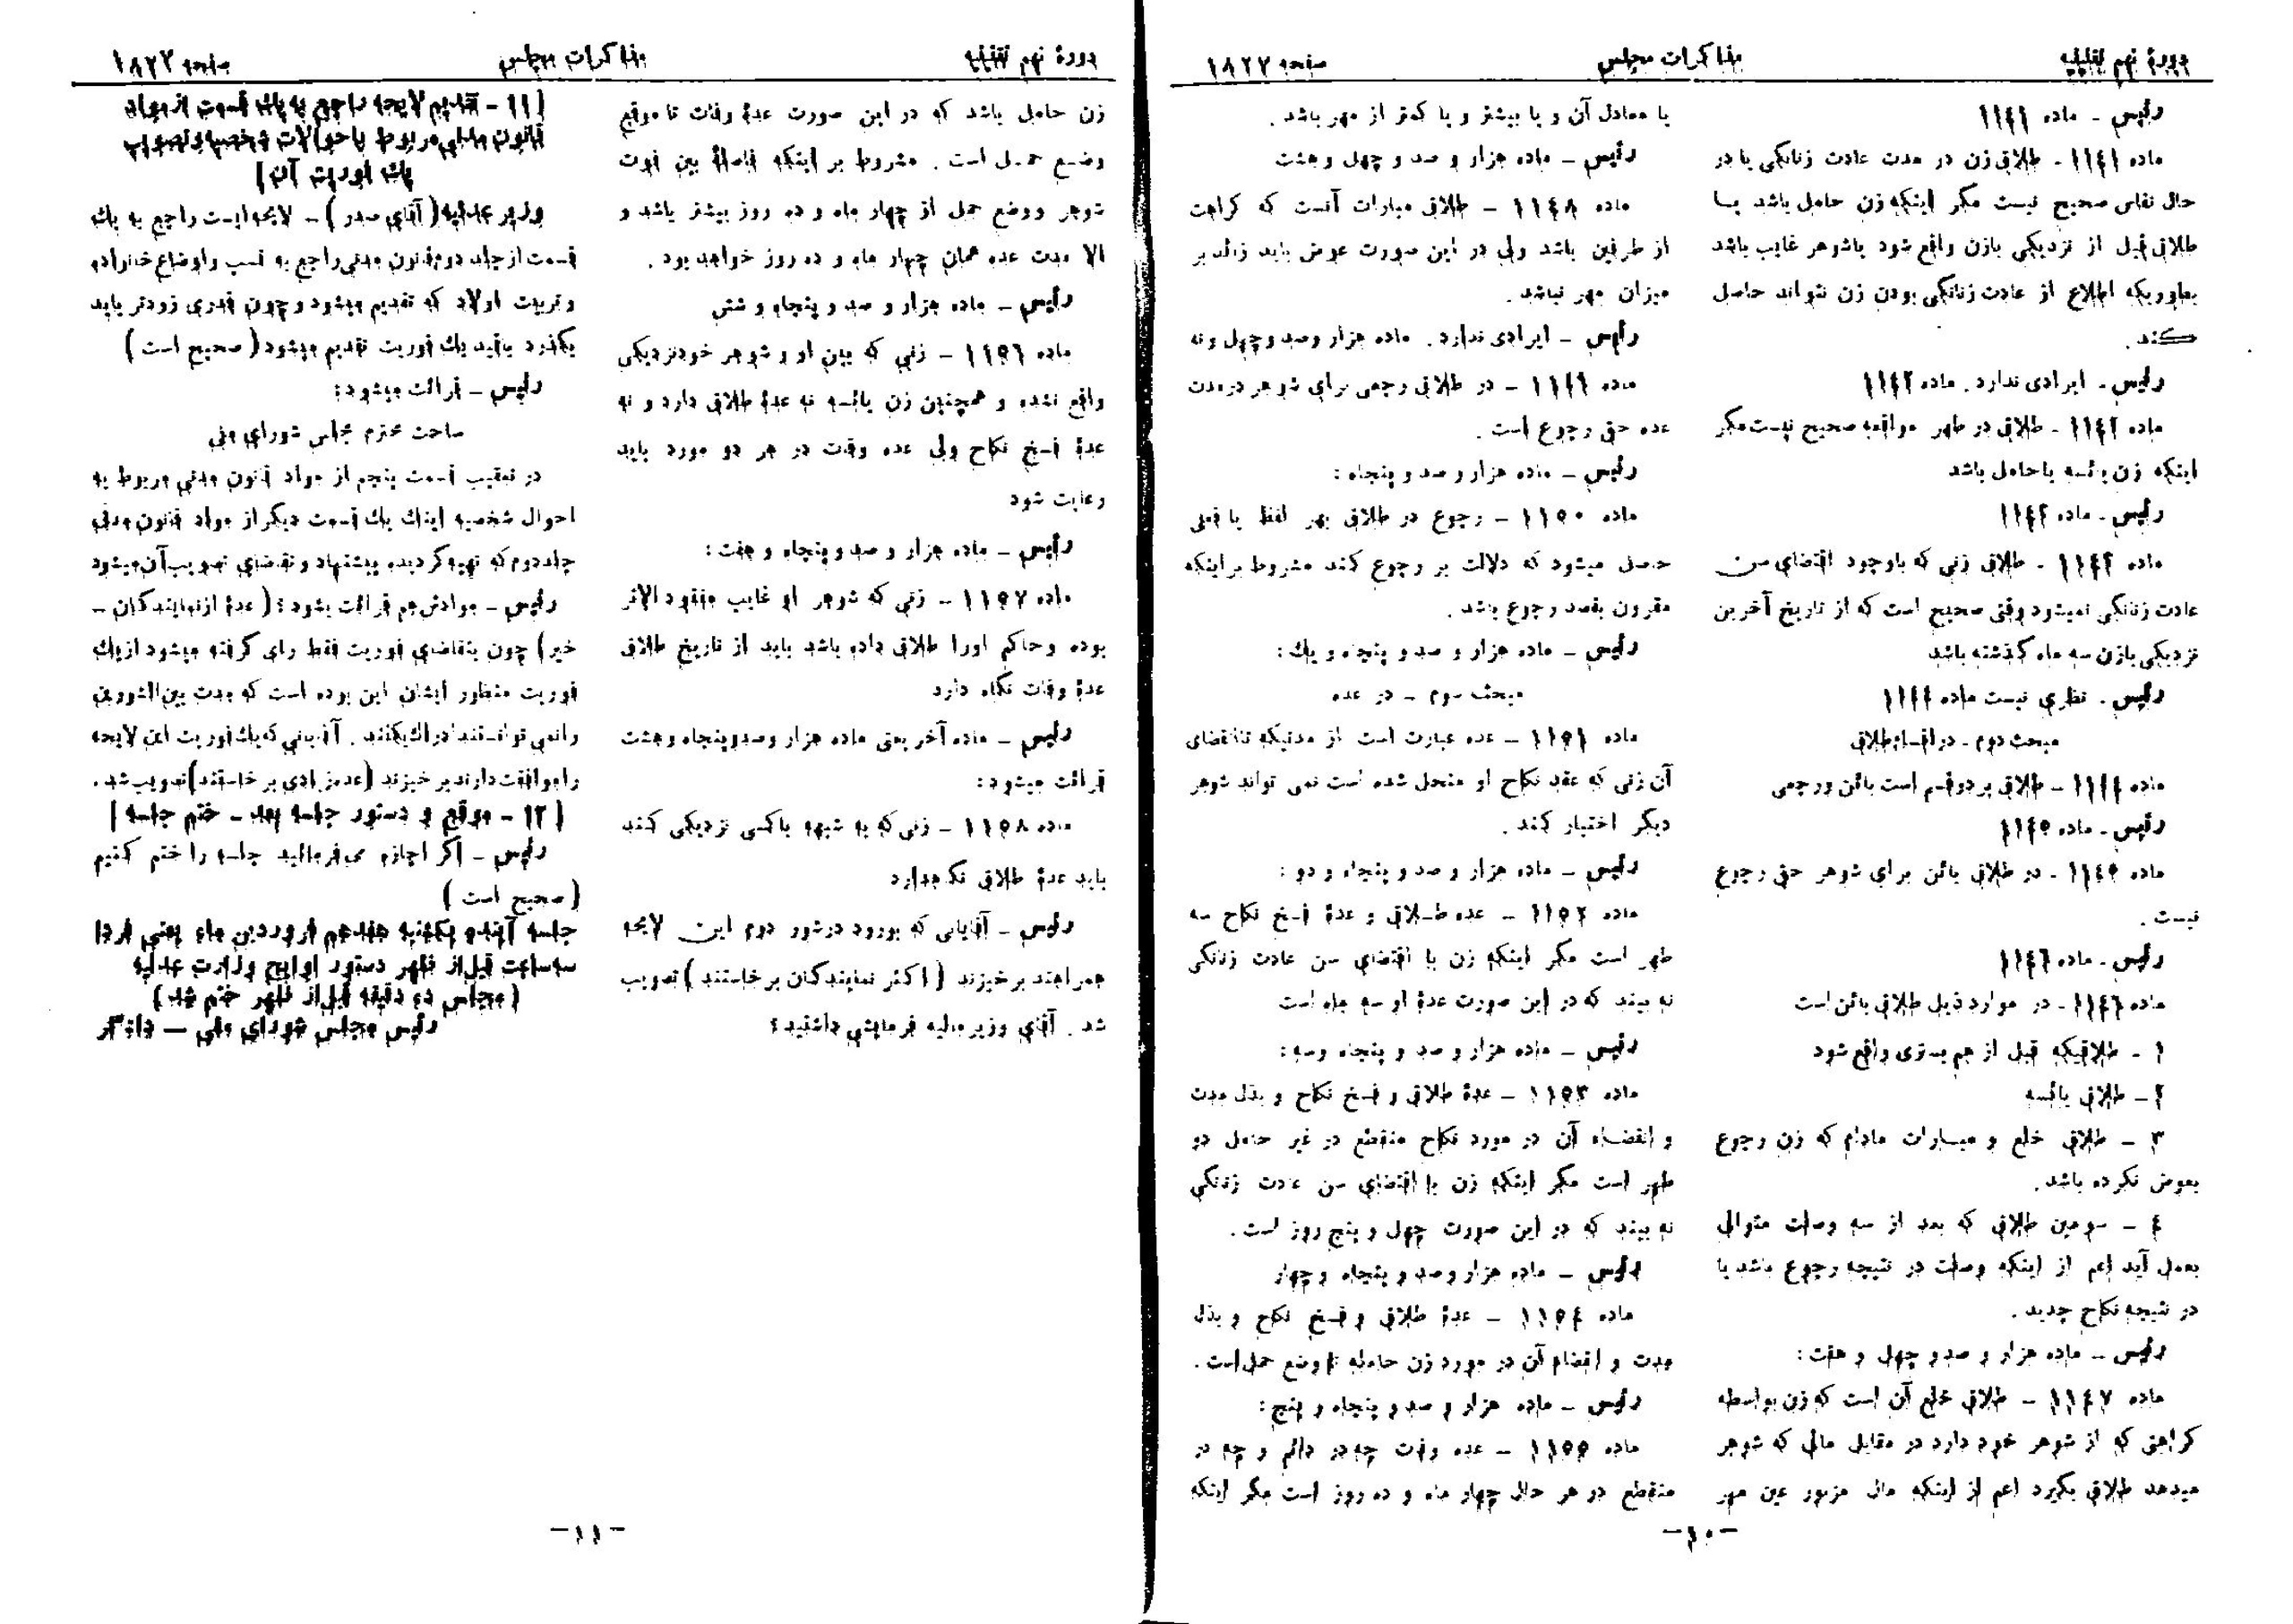 دورهٔ نهم تقنینیه
مذاکرات مجلس
صفحه ۱۸۲۲
رئیس ـ ماده ۱۱٤۱
ماده ۱۱٤۱ ـ طلاق زن در مدت عادت زنانگی یا در
حال نفاس صحیح نیست مگر اینکه زن حامل باشد یا
طلاق قبل از نزدیکی با زن واقع شود یا شوهر غایب باشد
بطوریکه اطلاع از عادت زنانگی بودن زن نتواند حاصل
کند .
رئیس ـ ایرادی ندارد . ماده ۱۱٤۲
ماده ۱۱٤۲ ـ طلاق در طهر مواقعه صحیح نیست مگر
اینکه زن یائسه یا حامل باشد
رئیس ـ ماده ۱۱٤۳
ماده ۱۱٤۳ ـ طلاق زنی که با وجود اقتضای سن
عادت زنانگی نمیشود وقتی صحیح است که از تاریخ آخرین
نزدیکی با زن سه ماه گذشته باشد
رئیس ـ نظری نیست ماده ۱۱٤٤
مبحث دوم ـ در اقسام طلاق
ماده ۱۱٤٤ ـ طلاق بر دو قسم است بائن و رجعی
رئیس ـ ماده ۱۱٤٥
ماده ۱۱٤٥ ـ در طلاق بائن برای شوهر حق رجوع
نیست .
رئیس ـ ماده ۱۱٤٦
ماده ۱۱٤٦ ـ در موارد ذیل طلاق بائن است
۱ ـ طلاقیکه قبل از هم بستری واقع شود
۲ ـ طلاق یائسه
۳ ـ طلاق خلع و مبارات مادام که زن رجوع
بعوض نکرده باشد .
٤ ـ سومین طلاق که بعد از سه وصلت متوالی
بعمل آید اعم از اینکه وصلت در نتیجه رجوع باشد یا
در نتیجه نکاح جدید .
رئیس ـ ماده هزار و صد و چهل و هفت :
ماده ۱۱٤۷ ـ طلاق خلع آن است که زن بواسطه
کراهتی که از شوهر خود دارد در مقابل مالی که شوهر
میدهد طلاق بگیرد اعم از اینکه مال مزبور عین مهر
یا معادل آن و یا بیشتر و یا کمتر از مهر باشد .
رئیس ـ ماده هزار و صد و چهل و هشت
ماده ۱۱٤۸ ـ طلاق مبارات آنست که کراهت
از طرفین باشد ولی در این صورت عوض باید زائد بر
میزان مهر نباشد .
رئیس ـ ایرادی ندارد . ماده هزار و صد و چهل و نه
ماده ۱۱٤۹ ـ در طلاق رجعی برای شوهر در مدت
عده حق رجوع است .
رئیس ـ ماده هزار و صد و پنجاه :
ماده ۱۱٥۰ ـ رجوع در طلاق بهر لفظ یا فعلی
حاصل میشود که دلالت بر رجوع کند مشروط بر اینکه
مقرون بقصد رجوع باشد .
رئیس ـ ماده هزار و صد و پنجاه و یك :
مبحث سوم ـ در عده
ماده ۱۱٥۱ ـ عده عبارت است از مدتیکه تا انقضای
آن زنی که عقد نکاح او منحل شده است نمی تواند شوهر
دیگر اختیار کند .
رئیس ـ ماده هزار و صد و پنجاه و دو :
ماده ۱۱٥۲ ـ عده طلاق و عدهٔ فسخ نکاح سه
طهر است مگر اینکه زن با اقتضای سن عادت زنانگی
نه بیند که در این صورت عدهٔ او سه ماه است
رئیس ـ ماده هزار و صد و پنجاه وسه :
ماده ۱۱٥۳ ـ عدهٔ طلاق و فسخ نکاح و بذل مدت
و انقضاء آن در مورد نکاح منقطع در غیر حامل دو
طهر است مگر اینکه زن با اقتضای سن عادت زنانگی
نه بیند که در این صورت چهل و پنج روز است .
رئیس ـ ماده هزار و صد و پنجاه و چهار
ماده ۱۱٥٤ ـ عدهٔ طلاق و فسخ نکاح و بذل
مدت و انقضاء آن در مورد زن حامله تا وضع حمل است .
رئیس ـ ماده هزار و صد و پنجاه و پنج :
ماده ۱۱٥٥ ـ عده وفات چه در دائم و چه در
منقطع در هر حال چهار ماه و ده روز است مگر اینکه
ـ ۱۰ ـ
دورهٔ نهم تقنینیه
مذاکرات مجلس
صفحه ۱۸۲۳
زن حامل باشد که در این صورت عدهٔ وفات تا موقع
وضع حمل است . مشروط بر اینکه فاصلهٔ بین فوت
شوهر و وضع حمل از چهار ماه و ده روز بیشتر باشد و
الا مدت عده همان چهار ماه و ده روز خواهد بود .
رئیس ـ ماده هزار و صد و پنجاه و شش
ماده ۱۱٥٦ ـ زنی که بین او و شوهر خود نزدیکی
واقع نشده و همچنین زن یائسه نه عدهٔ طلاق دارد و نه
عدهٔ فسخ نکاح ولی عده وفات در هر دو مورد باید
رعایت شود
رئیس ـ ماده هزار و صد و پنجاه و هفت :
ماده ۱۱٥۷ ـ زنی که شوهر او غایب مفقود الاثر
بوده و حاکم او را طلاق داده باشد باید از تاریخ طلاق
عدهٔ وفات نگاه دارد
رئیس ـ ماده آخر یعنی ماده هزار و صد و پنجاه و هشت
قرائت میشود :
ماده ۱۱٥۸ ـ زنی که به شبهه با کسی نزدیکی کند
باید عدهٔ طلاق نگهدارد
رئیس ـ آقایانی که بورود در شور دوم این لایحه
همراهند برخیزند ( اکثر نمایندگان برخاستند ) تصویب
شد . آقای وزیر مالیه فرمایشی داشتید ؟
[ ۱۱ ـ تقدیم لایحه راجع به یك قسمت از مواد
قانون مدنی مربوط باحوالات شخصیه و تصویب
یك فوریت آن ]
وزیر عدلیه ( آقای صدر ) ـ لایحه ایست راجع به یك
قسمت از جلد دوم قانون مدنی راجع به نسب و اوضاع خانواده
و تربیت اولاد که تقدیم میشود و چون قدری زودتر باید
بگذرد با قید یك فوریت تقدیم میشود ( صحیح است )
رئیس ـ قرائت میشود :
ساحت محترم مجلس شورای ملی
در تعقیب قسمت پنجم از مواد قانون مدنی مربوط به
احوال شخصیه اینك یك قسمت دیگر از مواد قانون مدنی
جلد دوم که تهیه گردیده پیشنهاد و تقاضای تصویب آن میشود
رئیس ـ موادش هم قرائت بشود ؟ ( عدهٔ از نمایندگان ـ
خیر ) چون بتقاضای فوریت فقط رای گرفته میشود از یك
فوریت منظور ایشان این بوده است که مدت بین الشورین
را نمی توانستند ادراك بکنند . آقایانی که یك فوریت این لایحه
را موافقت دارند برخیزند ( عده زیادی برخاستند ) تصویب شد .
[ ۱۲ ـ موقع و دستور جلسه بعد ـ ختم جلسه ]
رئیس ـ اگر اجازه می فرمائید جلسه را ختم کنیم
( صحیح است )
جلسه آینده یکشنبه هفدهم فروردین ماه یعنی فردا
سه ساعت قبل از ظهر دستور لوایح وزارت عدلیه
( مجلس ده دقیقه قبل از ظهر ختم شد )
رئیس مجلس شورای ملی — دادگر
ـ ۱۱ ـ